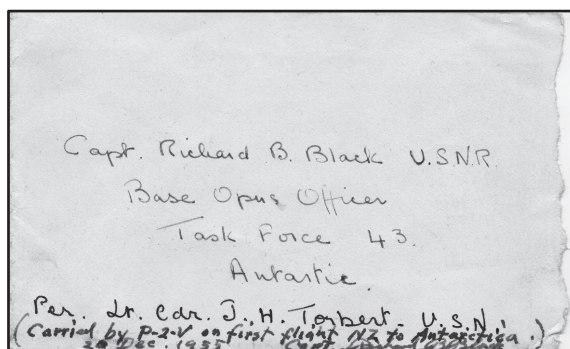 Capt. Richard B. Black U.S.N.R.
Base Opns Officer
Task Force 43.
Antartic.
Per. Lt. Cdr. J. H. Torbert U.S.N.
(Carried by P-2-V on first flight NZ to Antarctica.)
20 Dec. 1955 Capt.